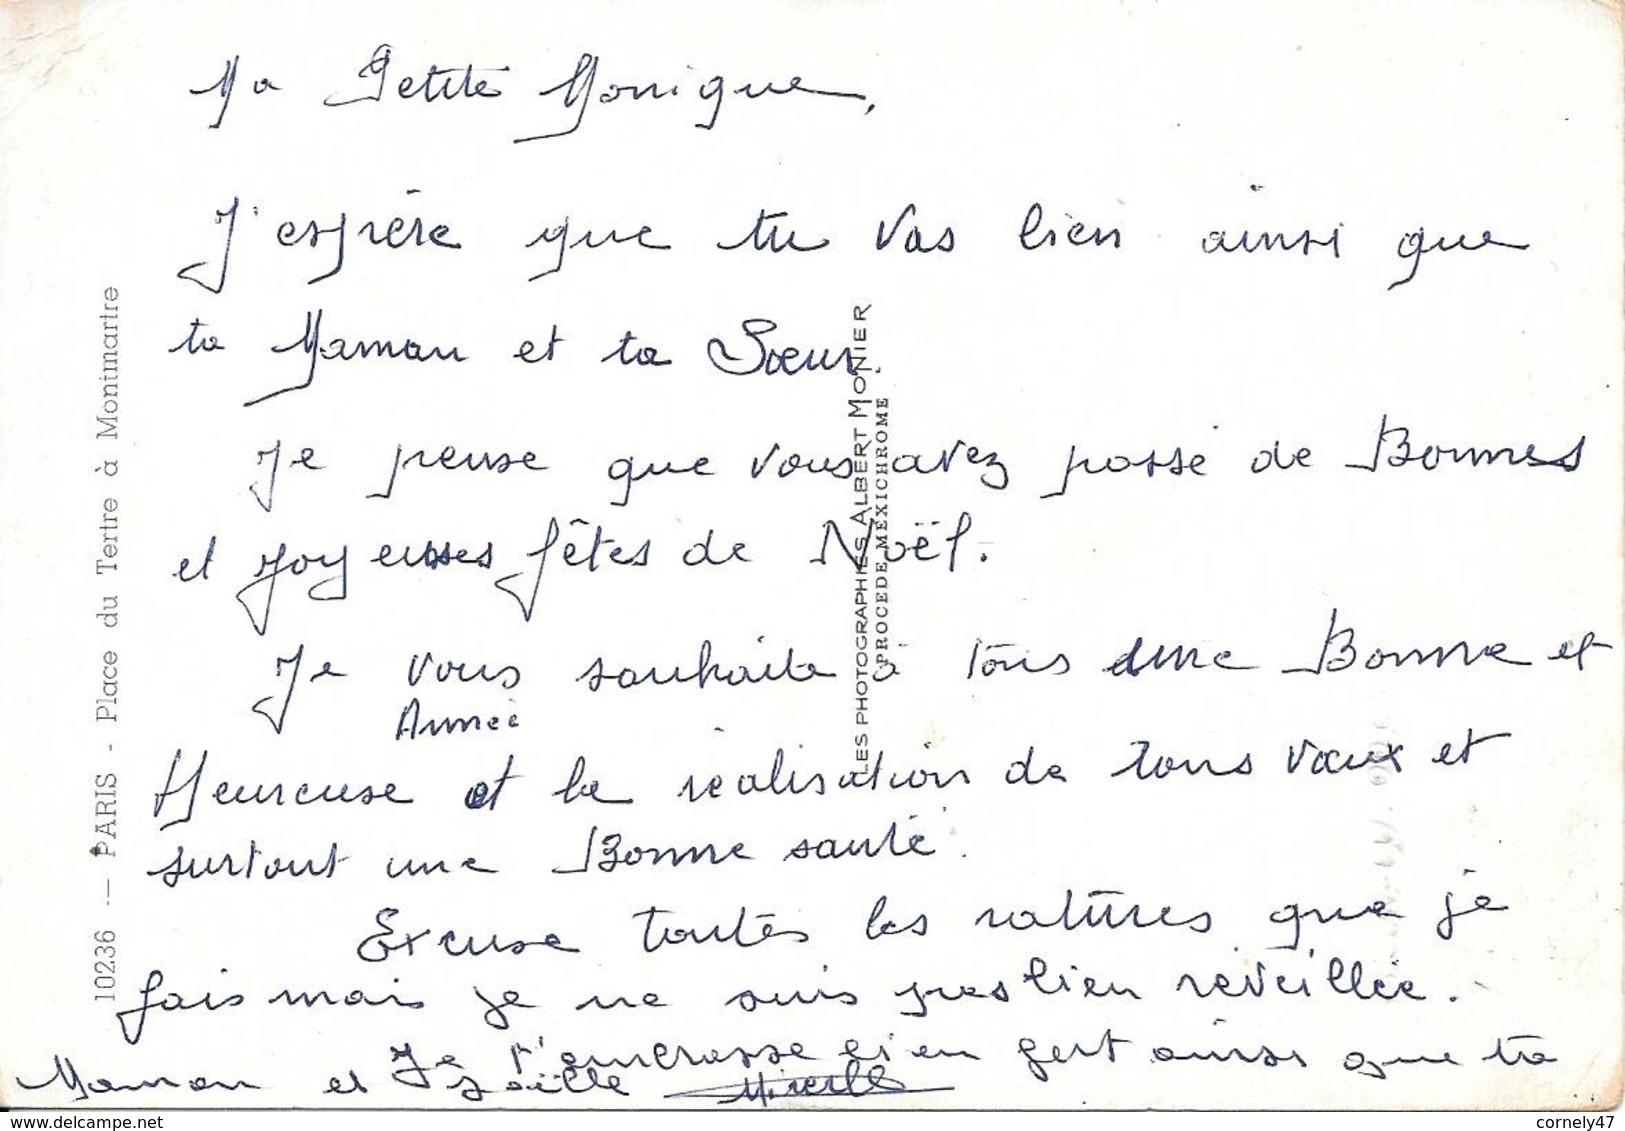 Ma Petite Monique,
J'espère que tu vas bien ainsi que
ta Maman et ta Sœur.
Je pense que vous avez passé de Bonnes
et joyeuses fêtes de Noël.
Je vous souhaite à tous une Bonne et
Année
Heureuse et la réalisation de tous vœux et
surtout une Bonne santé.
Excuse toutes les ratures que je
fais mais je ne suis pas bien réveillée.
Je t'embrasse bien fort ainsi que ta
Maman et Joëlle Mireille
10236 — PARIS - Place du Tertre à Montmartre
LES PHOTOGRAPHIES ALBERT MONIER
PROCEDE MEXICHROME
delcampe.net
cornely47